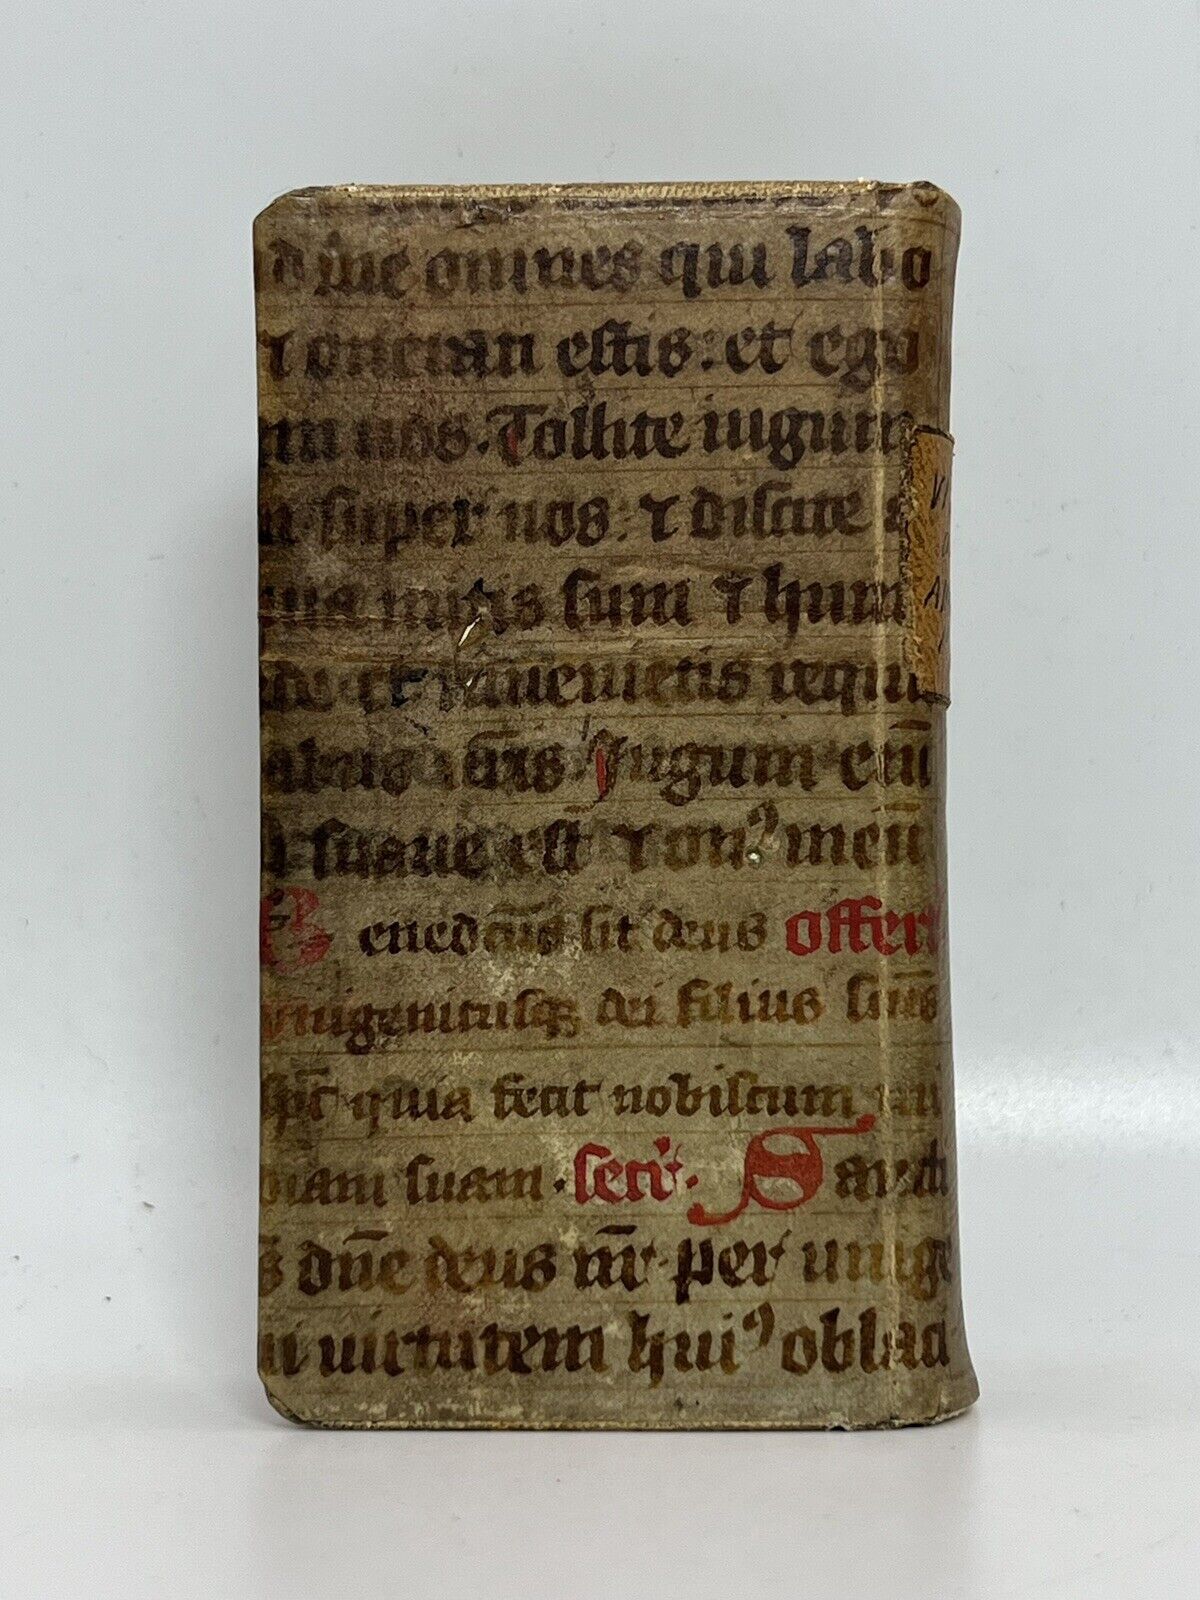 d me omnes qui labo
⁊ onerati estis: et ego
am uos. Tollite iugum
m super uos: ⁊ discite a
quia mitis sum ⁊ hum
de et inuenietis requi
abus uēris. Jugum enī
d suaue est ⁊ onꝰ meū
Benedcūs sit deus offert
vnigenitusqꝫ dei filius scūs
spc̄ quia fecit nobiscum mi
diam suam. secr̄. Sancti
s dn̄e deus nr̄ per unige
ui uirtutem huiꝰ oblaci
VI
AL